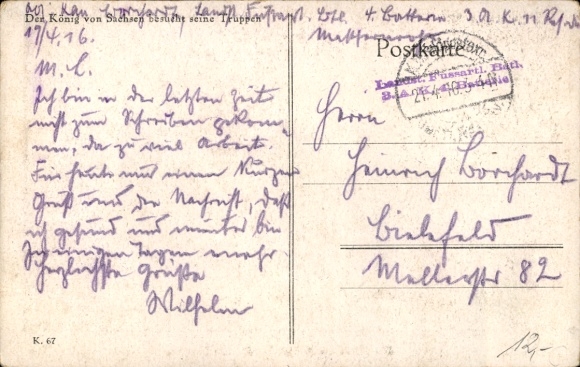 Abs. Kan. Borchardt, Landst. Fussart. Btl. 4. Batterie 3 A. K. 11 Res. Div.
Der König von Sachsen besucht seine Truppen
17/4. 16.
M. L.
Ich bin in der letzten Zeit
nicht zum Schreiben gekom-
men, da zu viel Arbeit.
Für heute nur einen kurzen
Gruß und die Nachricht, daß
ich gesund und munter bin
In einigen Tagen mehr.
Herzlichste Grüße
Wilhelm
K. 67
Postkarte
Landst. Fussartl. Batl.
4. Batterie
21.4.16.
Herrn
Heinrich Borchardt
Bielefeld
Mellerstr 82
12,-